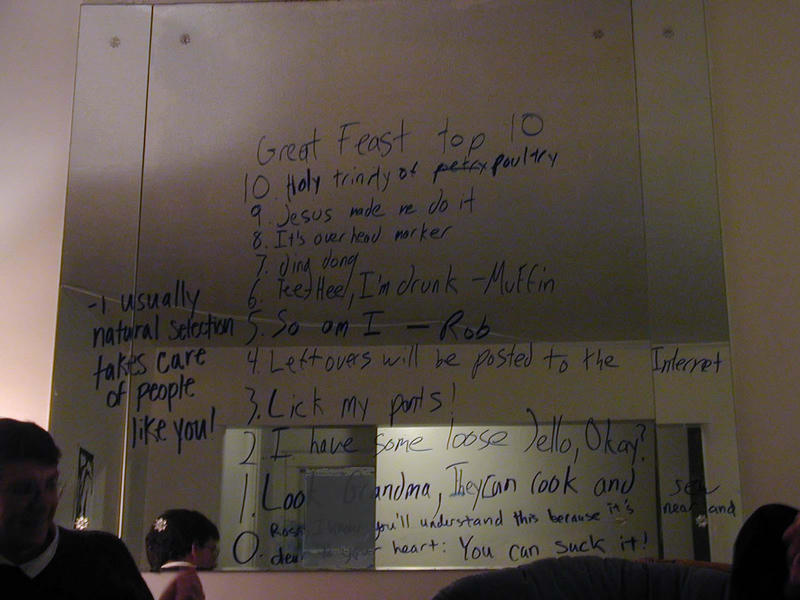 Great Feast top 10
10. Holy trinity of petry poultry
9. Jesus made me do it
8. It's overhead marker
7. ding dong
6. Tee-Hee, I'm drunk - Muffin
5. So am I - Rob
4. Leftovers will be posted to the Internet
3. Lick my pants!
2. I have some loose Jello, Okay?
1. Look Grandma, They can cook and sew
0. Ross, I know you'll understand this because it's near and
dear to your heart: You can suck it!
-1 usually
natural selection
takes care
of people
like you!